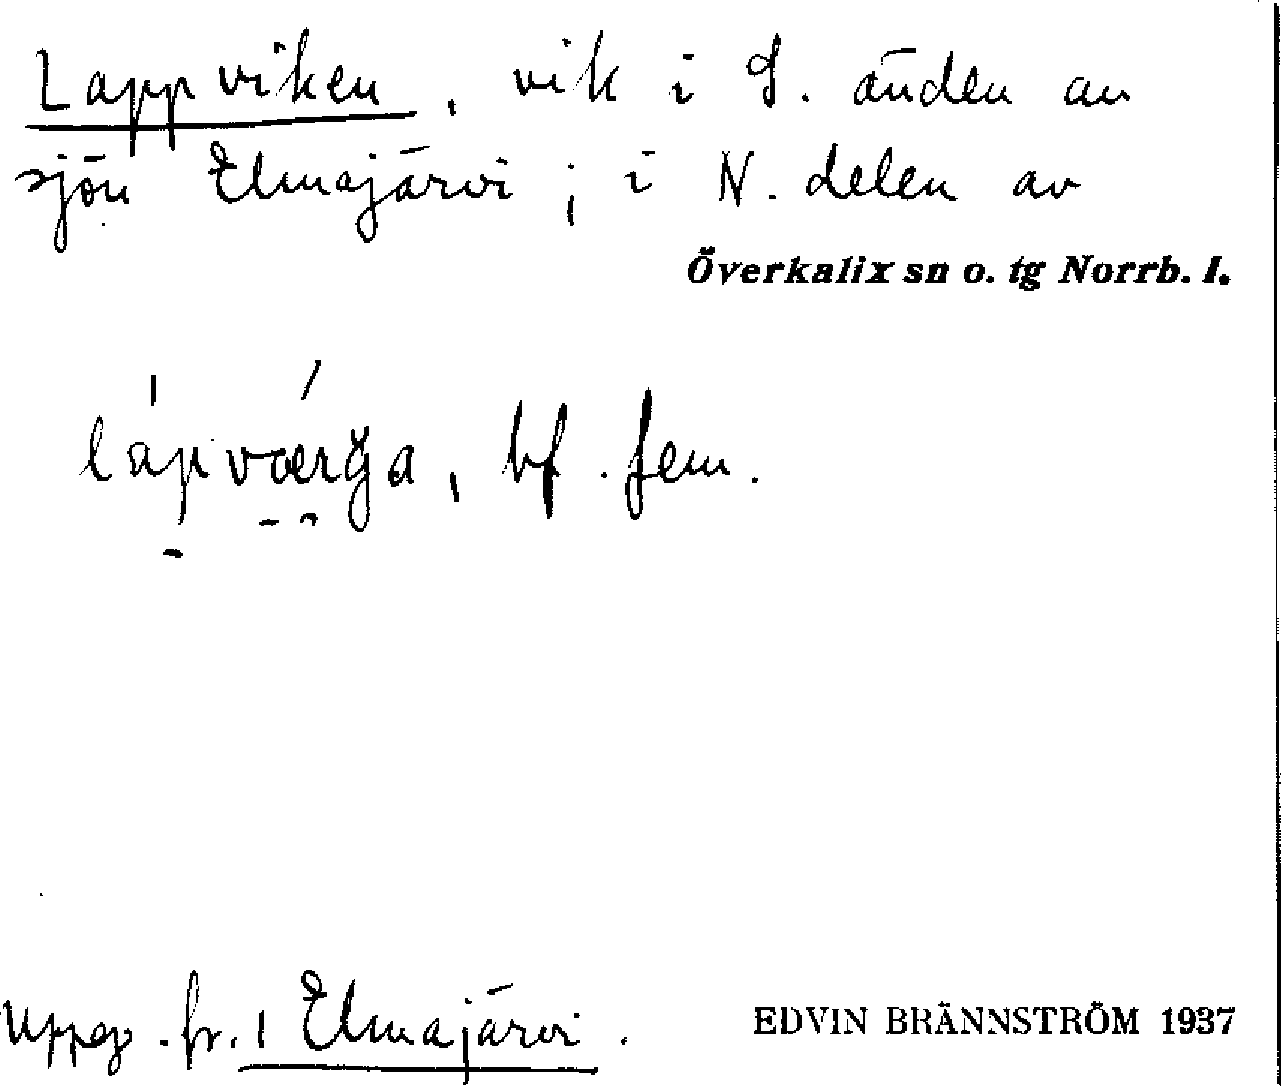 Lappviken, vik i S. änden av
sjön Elmajärvi; i N. delen av
Överkalix sn o. tg Norrb. l.
bf. fem.
Uppg. fr. 1 Elmajärvi.
EDVIN BRÄNNSTRÖM 1937